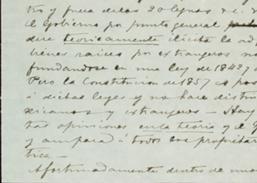 tro y fuera de las 20 leguas &c. &
el Gobierno por punto general
dere teoricamente ilicita la ad
bienes raices por extrangeros
fundandose en una ley de 1842 y
Pero la Constitucion de 1857 es pos
á dichas leyes y no hace distin
xicanos y extrangeros — Hay
tas opiniones en la teoria y el G
y ampara á todos los propietar
tica —
Afortunadamente dentro de